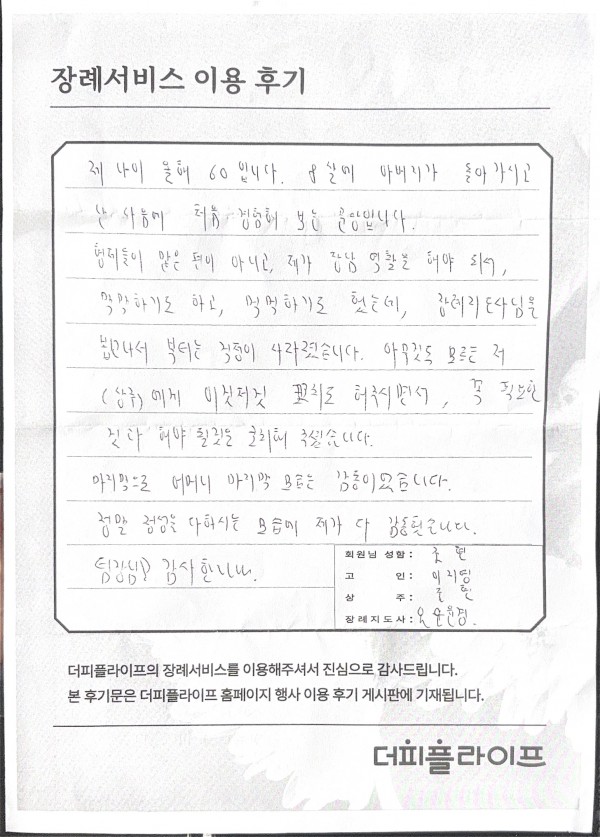 장례서비스 이용 후기
제 나이 올해 60입니다. 8살에 아버지가 돌아가시고
난 다음에 처음 경험해 보는 큰일입니다.
형제들이 많은 편이 아니고, 제가 장남 역할을 해야 되서,
막막하기도 하고, 먹먹하기도 했는데, 장례지도사님을
뵙고나서 부터는 걱정이 사라졌습니다. 아무것도 모르는 저
(상주)에게 이것저것 코치도 해주시면서, 꼭 필요한
것과 해야 될것을 해 주셨습니다.
마지막으로 어머니 마지막 모습은 감동이었습니다.
정말 정성을 다하시는 모습에 제가 다 감동했습니다.
팀장님 감사합니다.
회원님 성함:
고 인:
상 주:
장례지도사:
더피플라이프의 장례서비스를 이용해주셔서 진심으로 감사드립니다.
본 후기문은 더피플라이프 홈페이지 행사 이용 후기 게시판에 기재됩니다.
더피플라이프